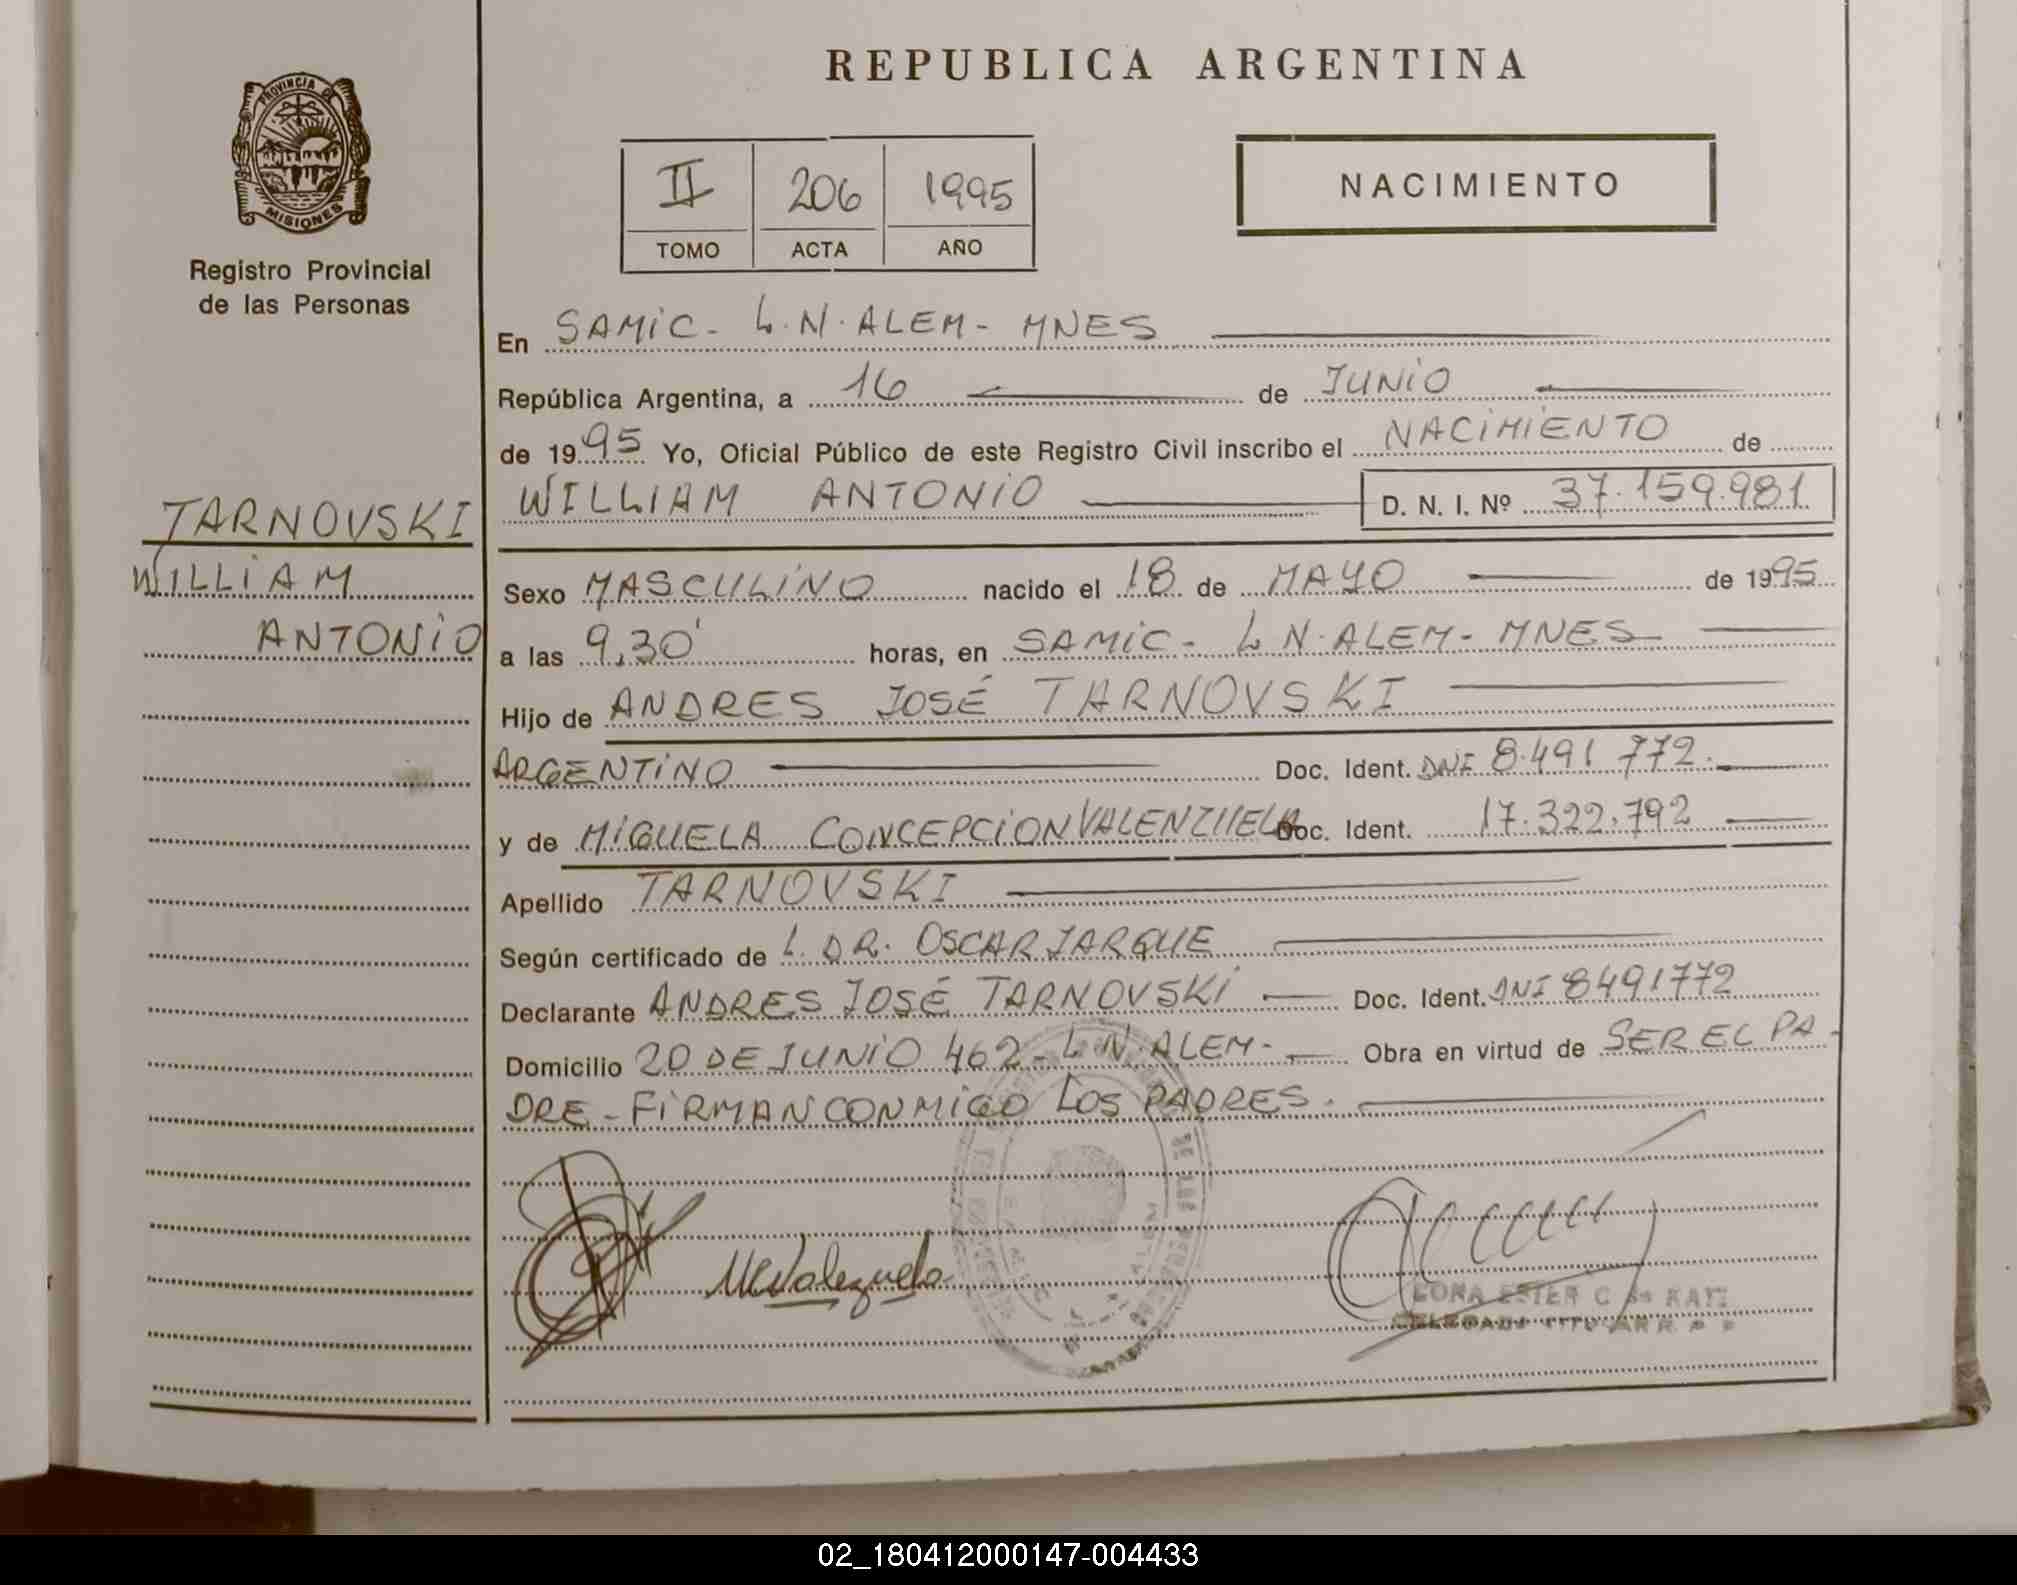 REPUBLICA ARGENTINA
PROVINCIA DE
MISIONES
Registro Provincial
de las Personas
II 206 1995
TOMO ACTA AÑO
NACIMIENTO
En SAMIC - L.N. ALEM - MNES
República Argentina, a 16 de JUNIO
de 1995 Yo, Oficial Público de este Registro Civil inscribo el NACIMIENTO de
WILLIAM ANTONIO D. N. I. Nº 37.159.981
TARNOVSKI
WILLIAM
ANTONIO
Sexo MASCULINO nacido el 18 de MAYO de 1995
a las 9,30' horas, en SAMIC - L N. ALEM - MNES
Hijo de ANDRES JOSÉ TARNOVSKI
ARGENTINO Doc. Ident. DNI 8.491 772.
y de MIGUELA CONCEPCION VALENZUELA Doc. Ident. 17.322.792
Apellido TARNOVSKI
Según certificado de L. DR. OSCAR JARQUE
Declarante ANDRES JOSÉ TARNOVSKI Doc. Ident. DNI 8491772
Domicilio 20 DE JUNIO 462 - L N. ALEM - Obra en virtud de SER EL PA-
DRE - FIRMAN CONMIGO LOS PADRES.
MCValezuela
ESTER C
02_180412000147-004433